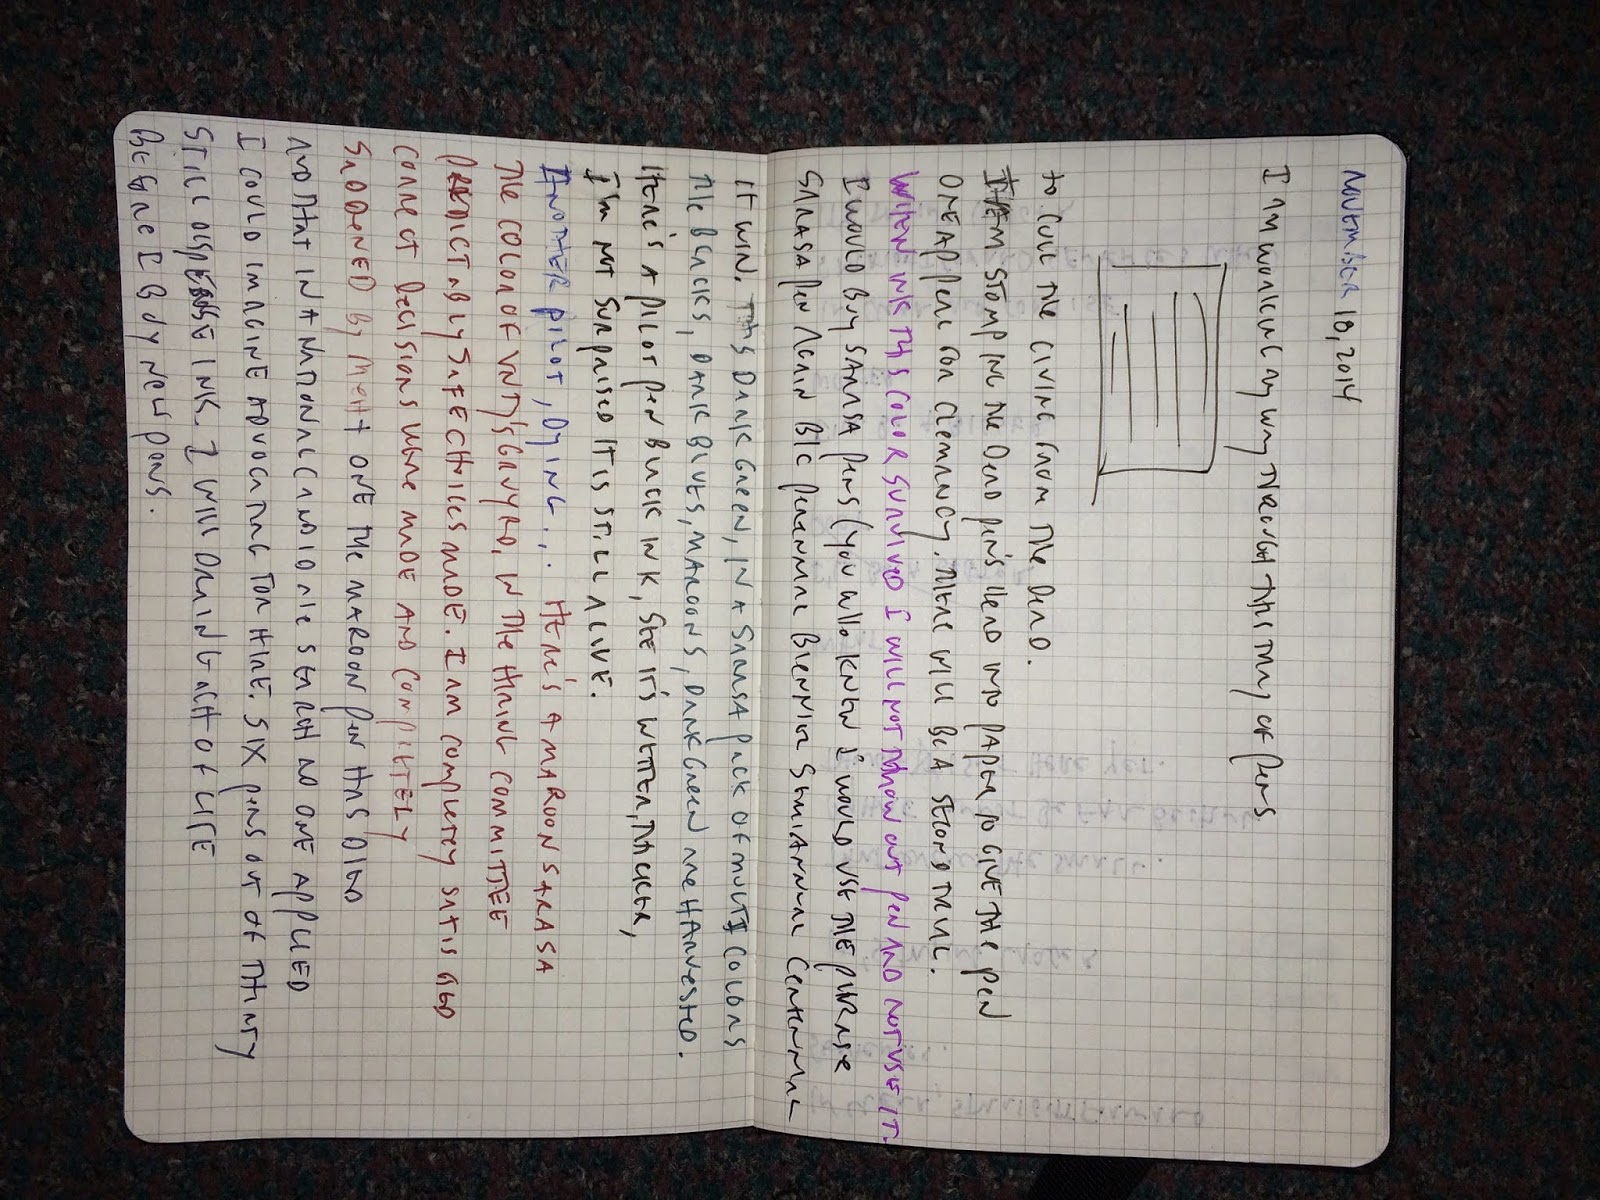 November 18, 2014
I am working my way through this tray of pens
to cull the living from the dead.
stomping the dead pen's head into paper to give the pen
one appeal for clemancy. There will be a second trial.
When ink this color survived I will not throw out pen and not use it.
I would buy Sarasa pens (you who knew I would use the phrase
Sarasa pen again BIC perennial biennial semiannual centennial
it win. This dark green, in a Sarasa pack of multi colors
the blacks, dark blues, maroons, dark green are harvested.
Here's a pilot pen black ink, see it's wetter, thicker,
I'm not surprised it is still alive.
Another pilot, dying... Here's a maroon Sarasa
the color of in the hiring committee
predictably safe choices made. I am completely satis
correct decisions were made and completely
saddened by that one the maroon pen has died
and that in a national candidate search no one applied
I could imagine advocating for hire. Six pens out of thirty
still dispense ink I will drain each of life
before I buy new pens.